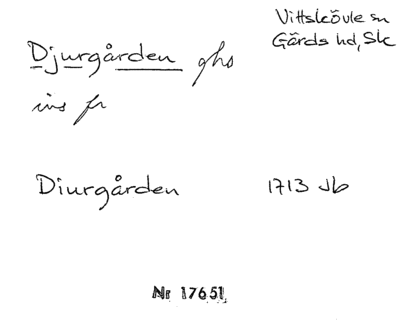 Vittskövle sn
Gärds hd, Sk
Djurgården ghs
ins fr
Diurgården 1713 Jb
Nr 17651